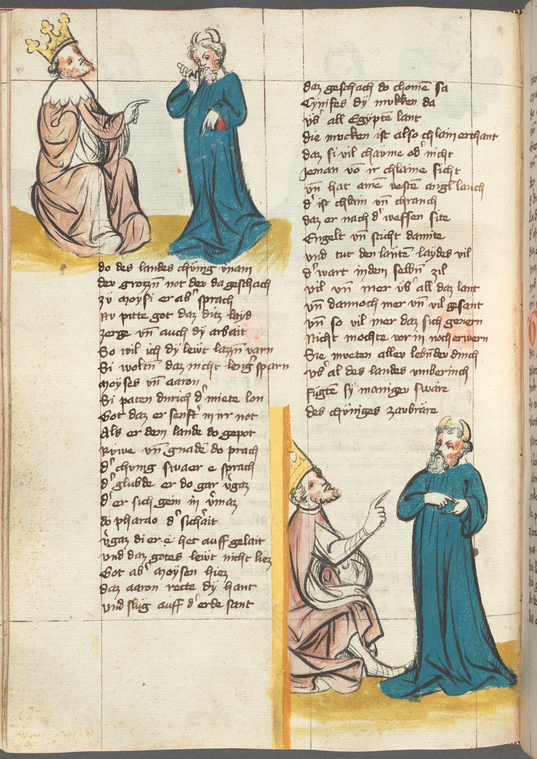 do des landes chung vnam
der grozzn not der da geschach
zu moysi er ab' sprach
Nv pitte got daz ditz layd
zerge vn auch dy arbait
So wil ich dy lewt lazzn varn
Si woltn daz nicht leng' sparn
moyses vn aaron
Si paten durich d' miete lon
Got daz er senft' in ir not
Als er dem lande do gepot
Ruwe vn gnade do prach
d' chung swaer e sprach
d' glubde er do gar v'gaz
d' er sich gem in
do pharao d' sich'ait
v'gaz di er e het auff gelait
vnd daz gotes lewt nicht liez
Got ab' moysen hiez
daz aaron recte dy hant
vnd slug auff d' erde sant
daz geschach do chome sa
Cynifes dy mukken da
vb' all Egypte lant
die mucken ist also chlain erchant
daz si vil chaume od' nicht
Jeman vo ir chlaine sicht
vn hat ame veste angl lanch
d' ist chlain vn chranch
daz er nach d' weffen site
Engelt vn sticht damite
vnd tut den lautn laydes vil
d' wart indem selbn zil
vil vn mer vb' all daz lant
vn dannoch mer vn vil gesant
vn so vil mer daz sich
Nicht mochte vor in
Sie mueten aller leb'nder dinch
vb' al des landes vmberinch
fugte sy maniger swäre
des chuniges zaubräre